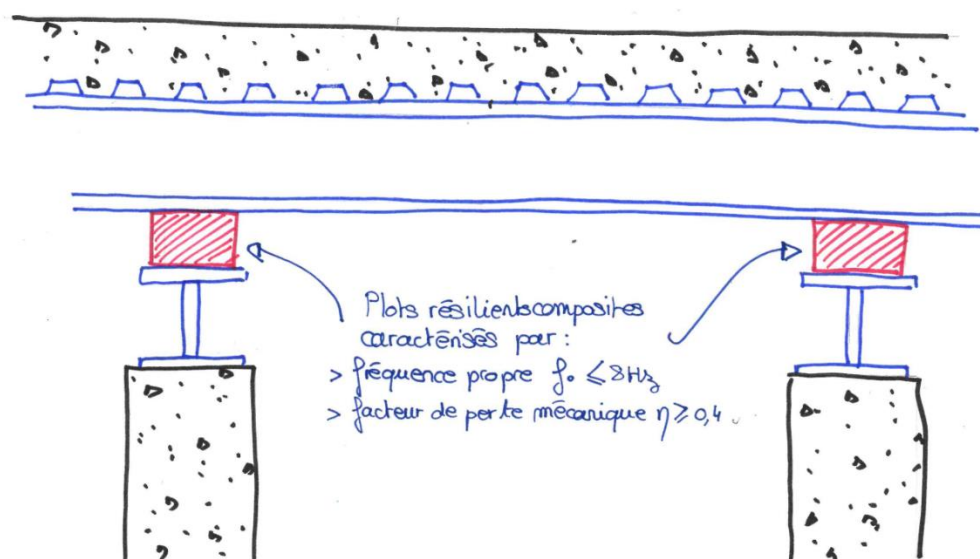 Plots résilients composites
caractérisés par :
> fréquence propre f₀ ≤ 8Hz
> facteur de perte mécanique η ≥ 0,4.